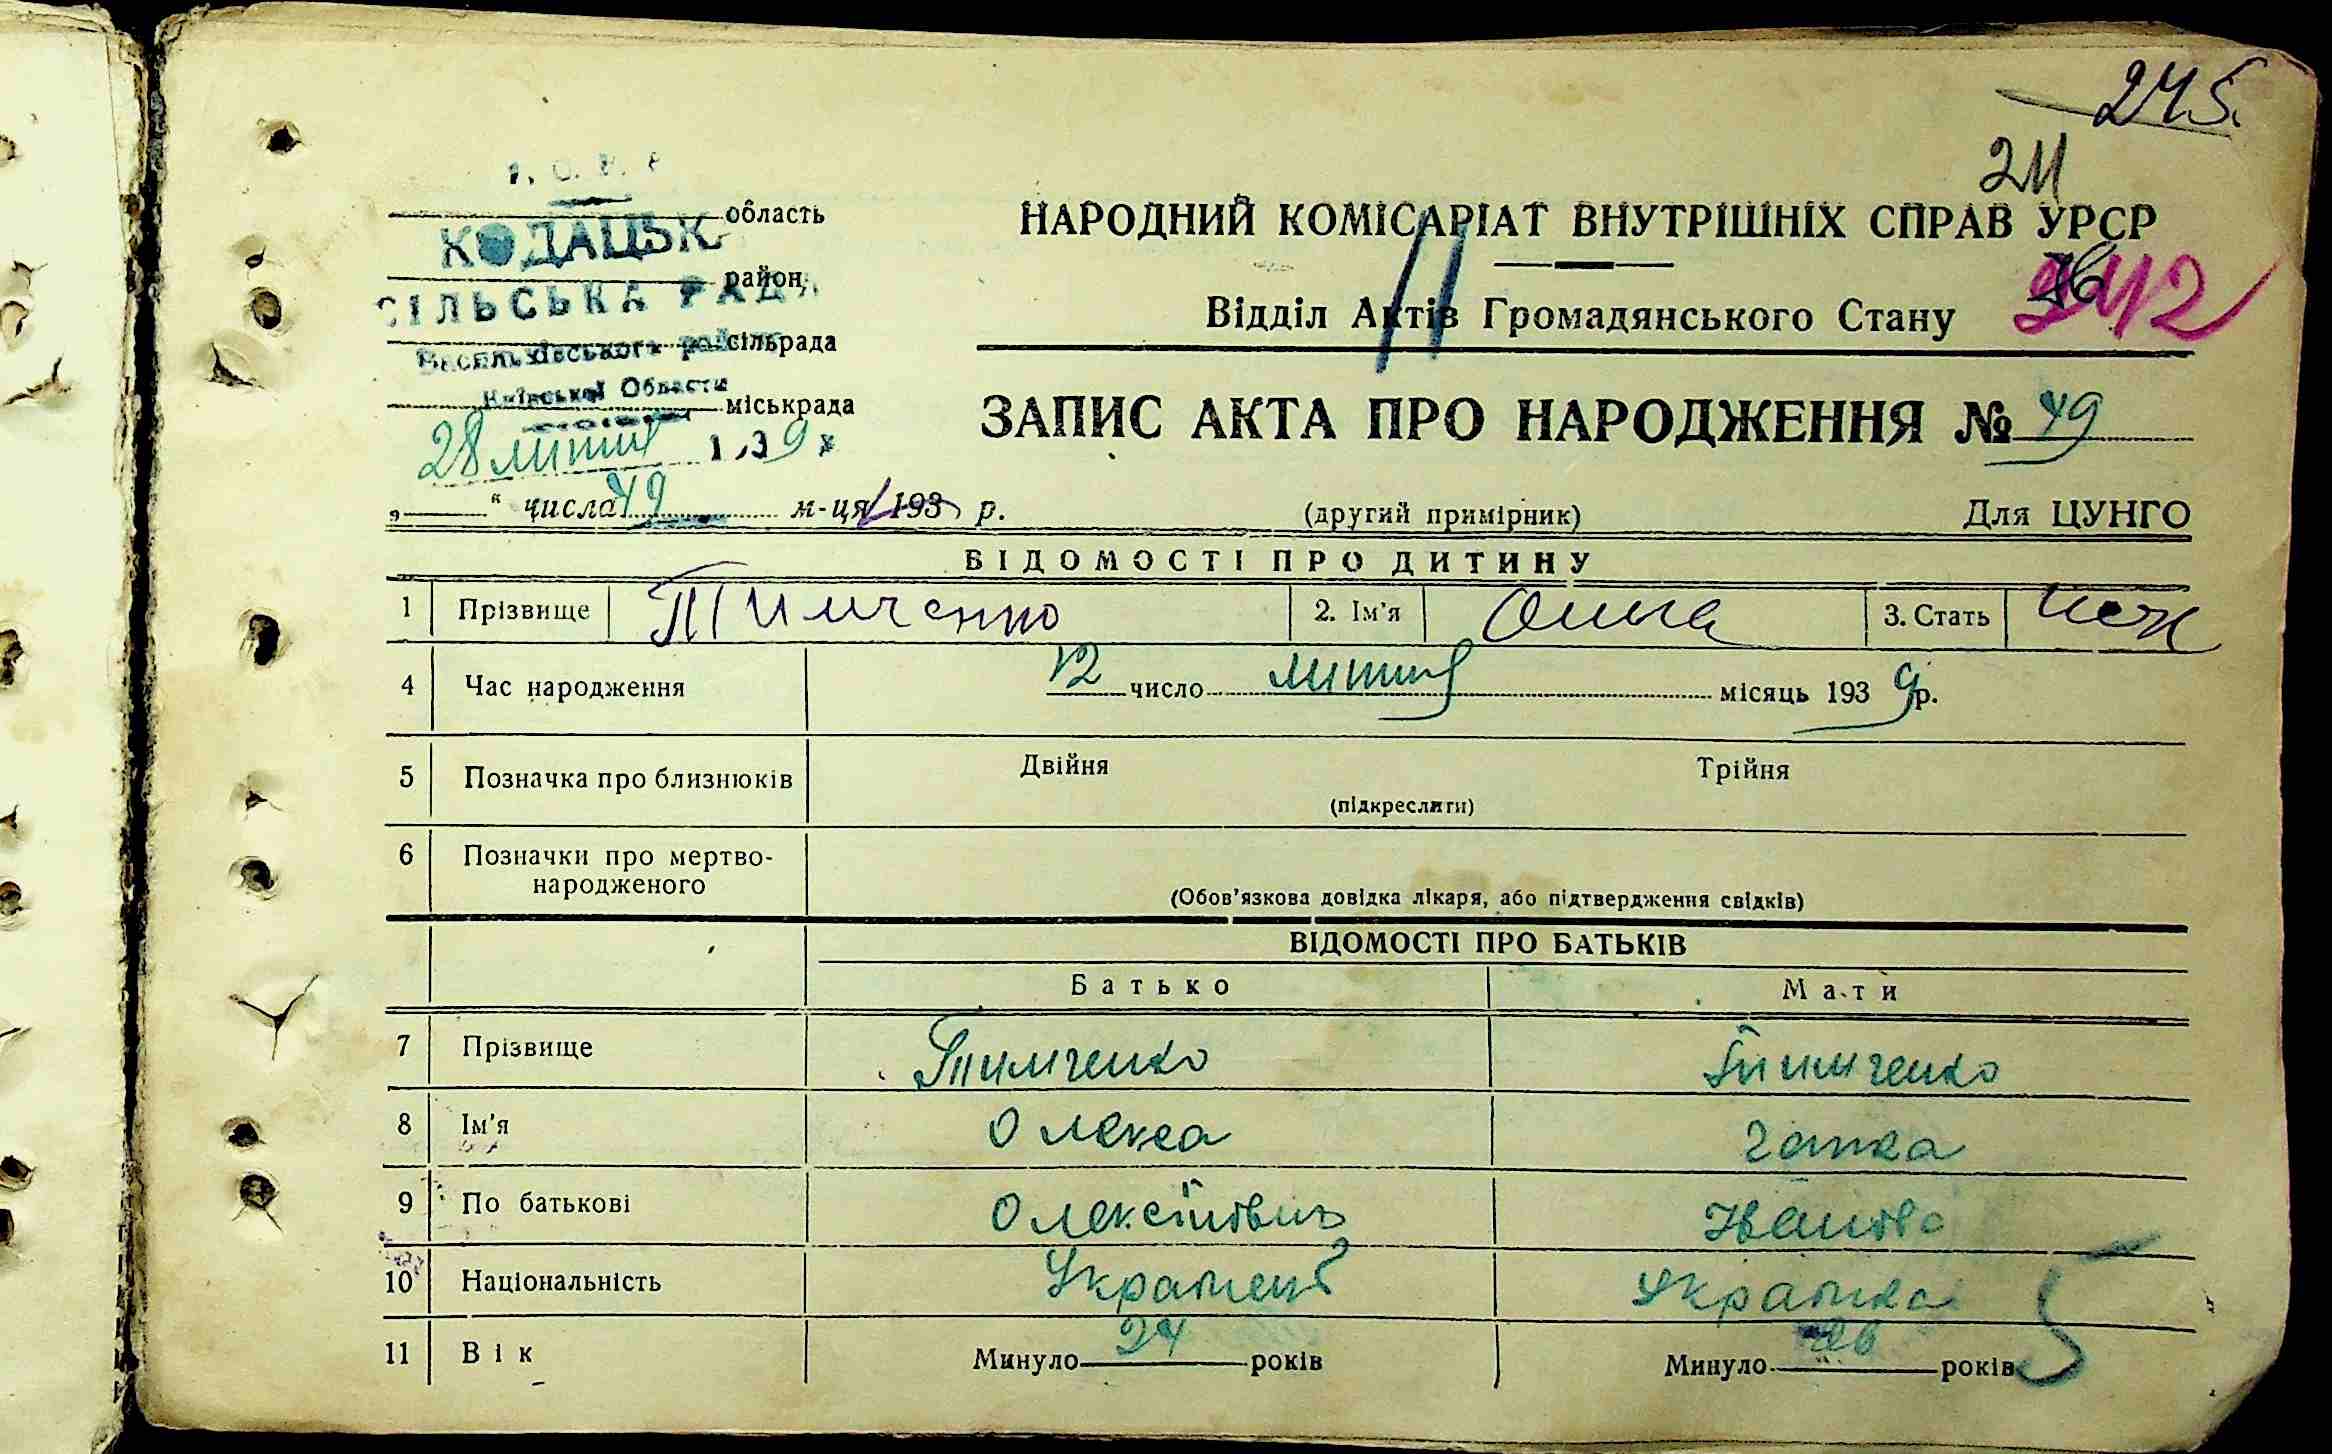 245.
211
НАРОДНИЙ КОМІСАРІАТ ВНУТРІШНІХ СПРАВ УРСР
242
Відділ Актів Громадянського Стану
область
КОДАЦЬК.
район
СІЛЬСЬКА РАДА
сільрада
Васильківського
Київської Области
міськрада
ЗАПИС АКТА ПРО НАРОДЖЕННЯ № 49
28 лютий 1939 р
„ “ числа 49 м-ця 193 р.
(другий примірник)
Для ЦУНГО
ВІДОМОСТІ ПРО ДИТИНУ
1 Прізвище Тимченко 2. Ім'я Ольга 3. Стать жоч
4 Час народження 12 число лютий місяць 1939 р.
5 Позначка про близнюків Двійня Трійня
(підкреслити)
6 Позначки про мертво-
народженого
(Обов'язкова довідка лікаря, або підтвердження свідків)
ВІДОМОСТІ ПРО БАТЬКІВ
Батько Мати
7 Прізвище Тимченко Тимченко
8 Ім'я Олекса Ганка
9 По батькові Олексійович Іванова
10 Національність Українець Українка
11 Вік Минуло 24 років Минуло 26 років